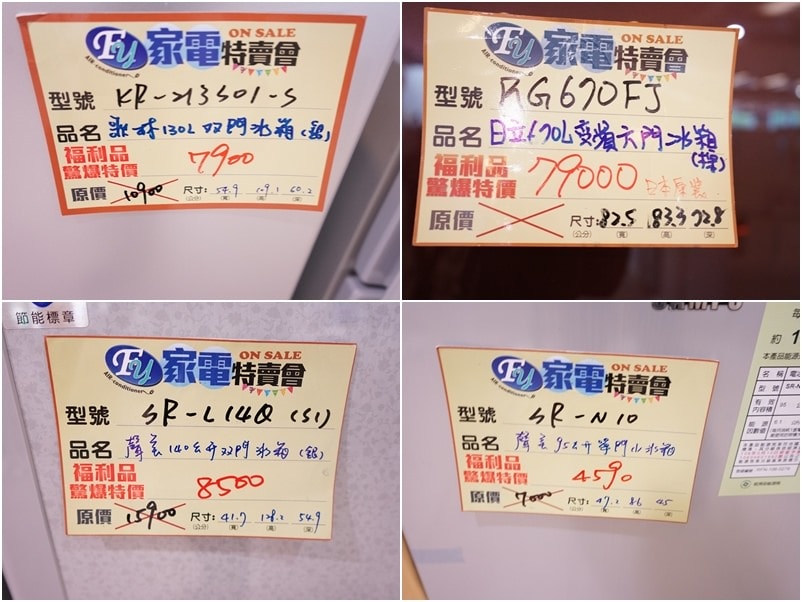 Fy 家電特賣會 ON SALE
AIR-conditioner
型號 KR-213S01-S
品名 歌林130L双門冰箱(銀)
福利品
驚爆特價 7900
原價 10900 尺寸: 54.9 109.1 60.2
(公分) (寬) (高) (深)
Fy 家電特賣會 ON SALE
AIR-conditioner
型號 RG670FJ
品名 日立670L變頻六門冰箱
福利品
驚爆特價 79000 日本原装
原價 尺寸: 82.5 183.3 72.8
(公分) (寬) (高) (深)
節能標章
Fy 家電特賣會 ON SALE
AIR-conditioner
型號 SR-L14Q (S1)
品名 聲寶140公升双門冰箱(銀)
福利品
驚爆特價 8500
原價 15900 尺寸: 41.7 128.2 54.9
(公分) (寬) (高) (深)
Fy 家電特賣會 ON SALE
AIR-conditioner
型號 SR-N10
品名 聲寶95公升單門小冰箱
福利品
驚爆特價 4590
原價 7000 尺寸: 47.2 86 45
(公分) (寬) (高) (深)
約 1
本產品能源
名稱 電冰
型號 SR-N
有效
內容積
能源
因數值